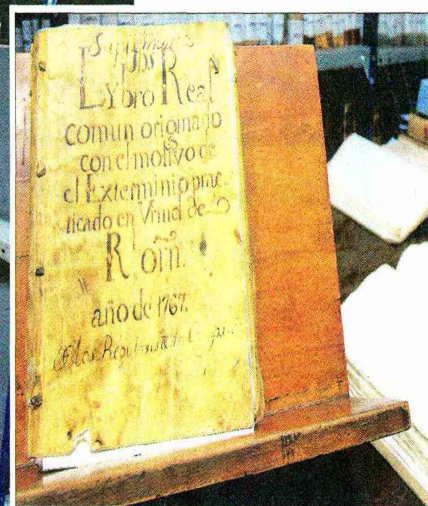 Lybro Real
comun originado
con el motivo de
el Exterminio prac
ticado en Virtud de
R. Orñ.
año de 1767.